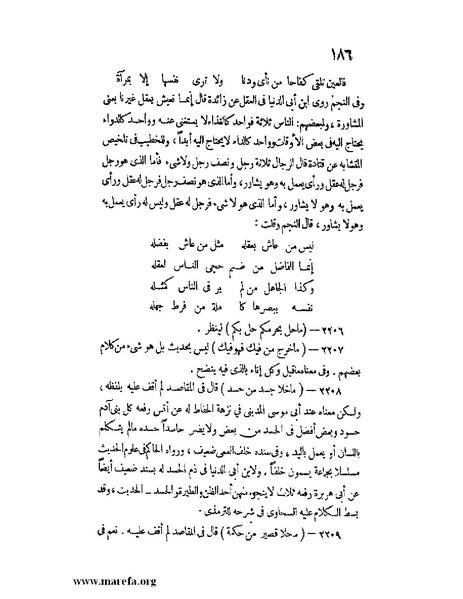 ١٨٦
فالعين تلقى كفاحا من نأى ودنا ولا ترى نفسها إلا بمرآة
وفي النجم روى ابن أبي الدنيا في العقل عن زائدة قال إنما نعيش بعقل غيرنا يعني
المشاورة ، ولبعضهم: الناس ثلاثة فواحد كالغذاء لا يستغنى عنه وواحد كالدواء
يحتاج اليه في بعض الأوقات وواحد كالداء لا يحتاج اليه أبداً ، وللخطيب في تلخيص
المتشابه عن قتادة قال الرجال ثلاثة رجل ونصف رجل ولا شيء فأما الذي هو رجل
فرجل له عقل ورأى يعمل به وهو يشاور ، وأما الذي هو نصف رجل فرجل له عقل ورأى
يعمل به وهو لا يشاور ، وأما الذي هو لا شيء فرجل له عقل وليس له رأى يعمل به
وهو لا يشاور ، قال النجم وقلت :
ليس من عاش بعقله مثل من عاش بفضله
إنما الفاضل من ضم حجى الناس لعقله
وكذا الجاهل من لم ير في الناس كمثله
نفسه يبصرها كا ملة من فرط جهله
٢٢٠٦ — ( ما حل بحرمكم حل بكم ) لينظر .
٢٢٠٧ — ( ما خرج من فيك فهو فيك ) ليس بحديث بل هو شيء من كلام
بعضهم . وفي معناه ما قيل وكل إناء بالذي فيه ينضح .
٢٢٠٨ — ( ما خلا جسد من حسد ) قال في المقاصد لم أقف عليه بلفظه ،
ولكن معناه عند أبي موسى المديني في نزهة الحفاظ له عن أنس رفعه كل بني آدم
حسود وبعض أفضل في الحسد من بعض ولا يضر حاسداً حسده مالم يتكلم
باللسان أو يعمل باليد ، وفي سنده خلف العمى ضعيف ، ورواه الحاكم في علوم الحديث
مسلسلا بجماعة يسمون خلفاً . ولابن أبي الدنيا في ذم الحسد له بسند ضعيف أيضاً
عن أبي هريرة رفعه ثلاث لا ينجو منهن أحد الظن والطيرة والحسد — الحديث ، وقد
بسط الكلام عليه السخاوى في شرحه للترمذي .
٢٢٠٩ — ( ما خلا قصير من حكمة ) قال في المقاصد لم أقف عليه . نعم في
www.marefa.org